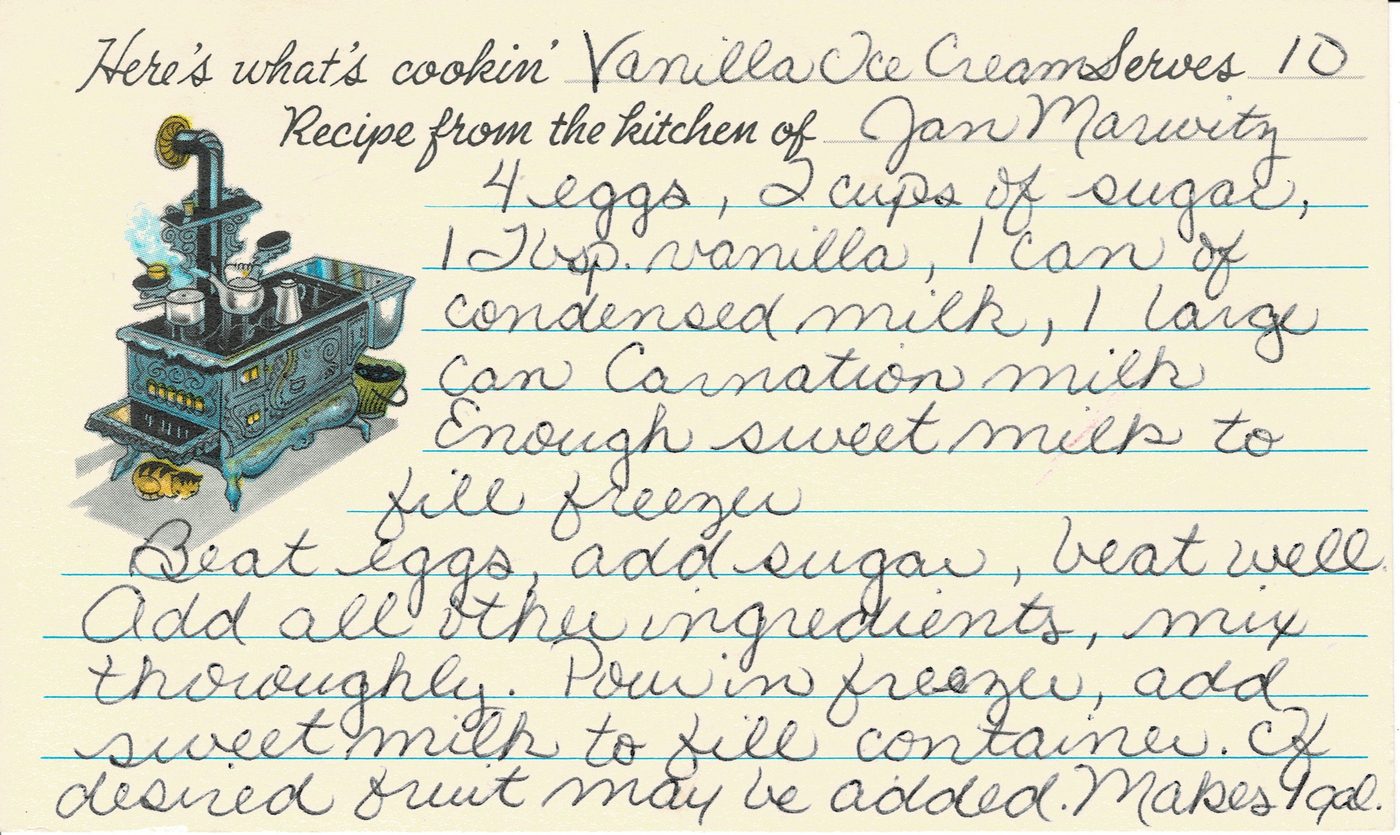 Here's what's cookin' Vanilla Ice Cream Serves 10
Recipe from the kitchen of Jan Marwitz
4 eggs, 2 cups of sugar,
1 Tbsp. vanilla, 1 can of
condensed milk, 1 large
can Carnation milk
Enough sweet milk to
fill freezer
Beat eggs, add sugar, beat well.
Add all other ingredients, mix
thoroughly. Pour in freezer, add
sweet milk to fill container. If
desired fruit may be added. Makes 1 gal.